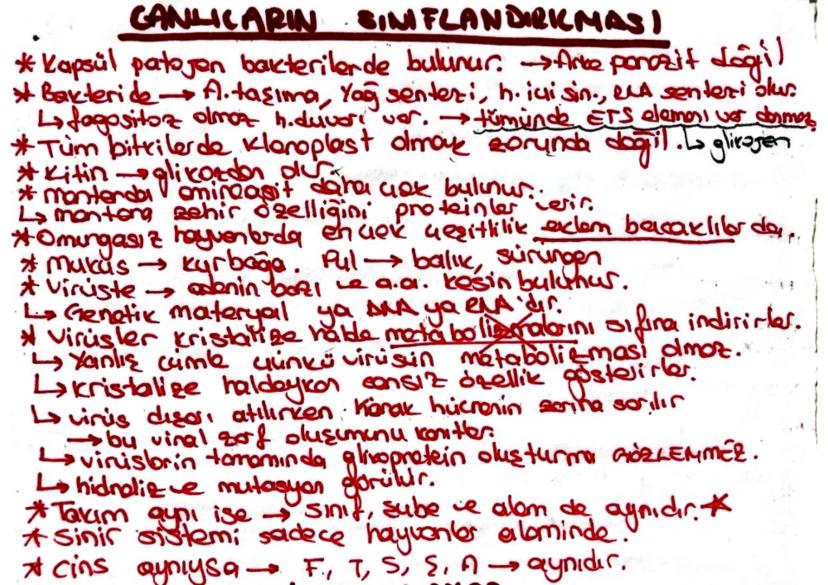 CANLILARIN SINIFLANDIRILMASI
* Kapsül patojen bakterilerde bulunur. → Arke parazit değil
* Bakteride → A. taşıma, Yağ sentezi, h. içi sin., RNA sentezi olur.
↳ fagositoz olmaz h. duvarı var. → tümünde ETS elemanı var
* Tüm bitkilerde kloroplast olmak zorunda değil. ↳ glikojen
* Kitin → glikozdan olur.
* mantarda aminoasit daha çok bulunur.
↳ mantara zehir özelliğini proteinler verir.
* Omurgasız hayvanlarda en çok çeşitlilik eklem bacaklılarda.
* mukus → kurbağa. Pul → balık, sürüngen
* Virüste → adenin bazı ve a.a. kesin bulunur.
↳ Genetik materyal ya DNA ya RNA'dır.
* Virüsler kristalize halde metabolizmalarını sıfıra indirirler.
↳ Yanlış cümle çünkü virüsün metabolizması olmaz.
↳ kristalize haldeyken cansız özellik gösterirler.
↳ virüs dışarı atılırken konak hücrenin zarına sarılır
→ bu viral zarf oluşumunu kanıtlar.
↳ virüslerin tamamında glikoprotein oluşturma GÖZLENMEZ.
↳ hidroliz ve mutasyon görülür.
* Takım aynı ise → sınıf, şube ve alem de aynıdır. *
* Sinir sistemi sadece hayvanlar aleminde.
* Cins aynıysa → F, T, S, Ş, A → aynıdır.